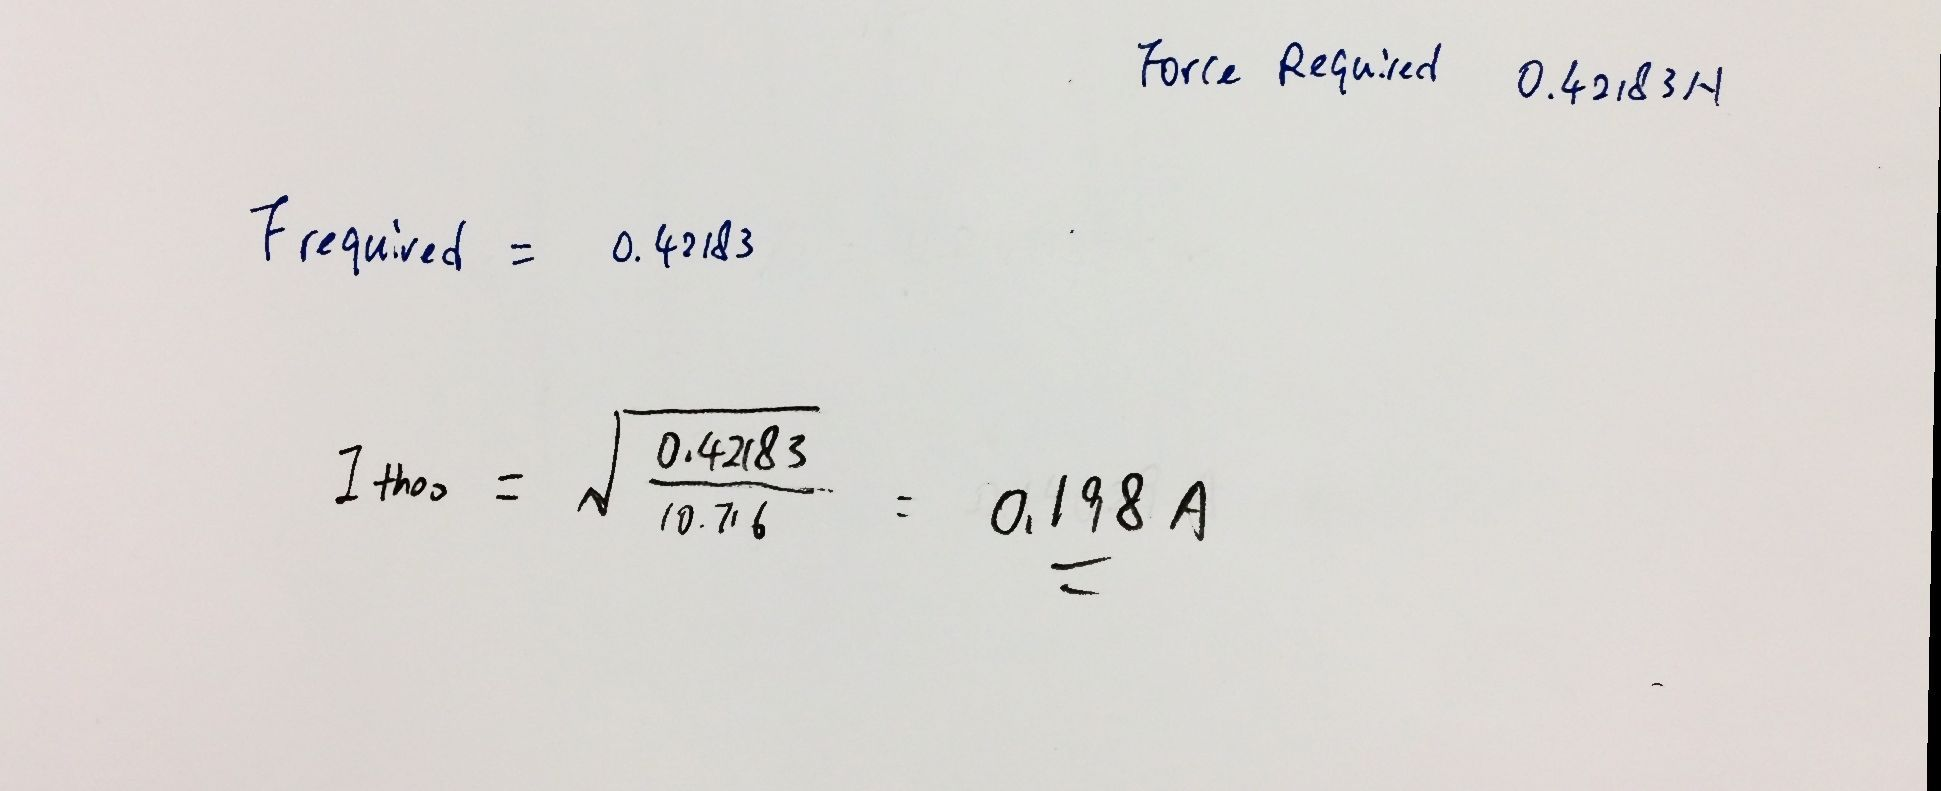 Force Required 0.42183N
Frequired = 0.42183
Itheo = √(0.42183 / 10.716) = 0.198 A